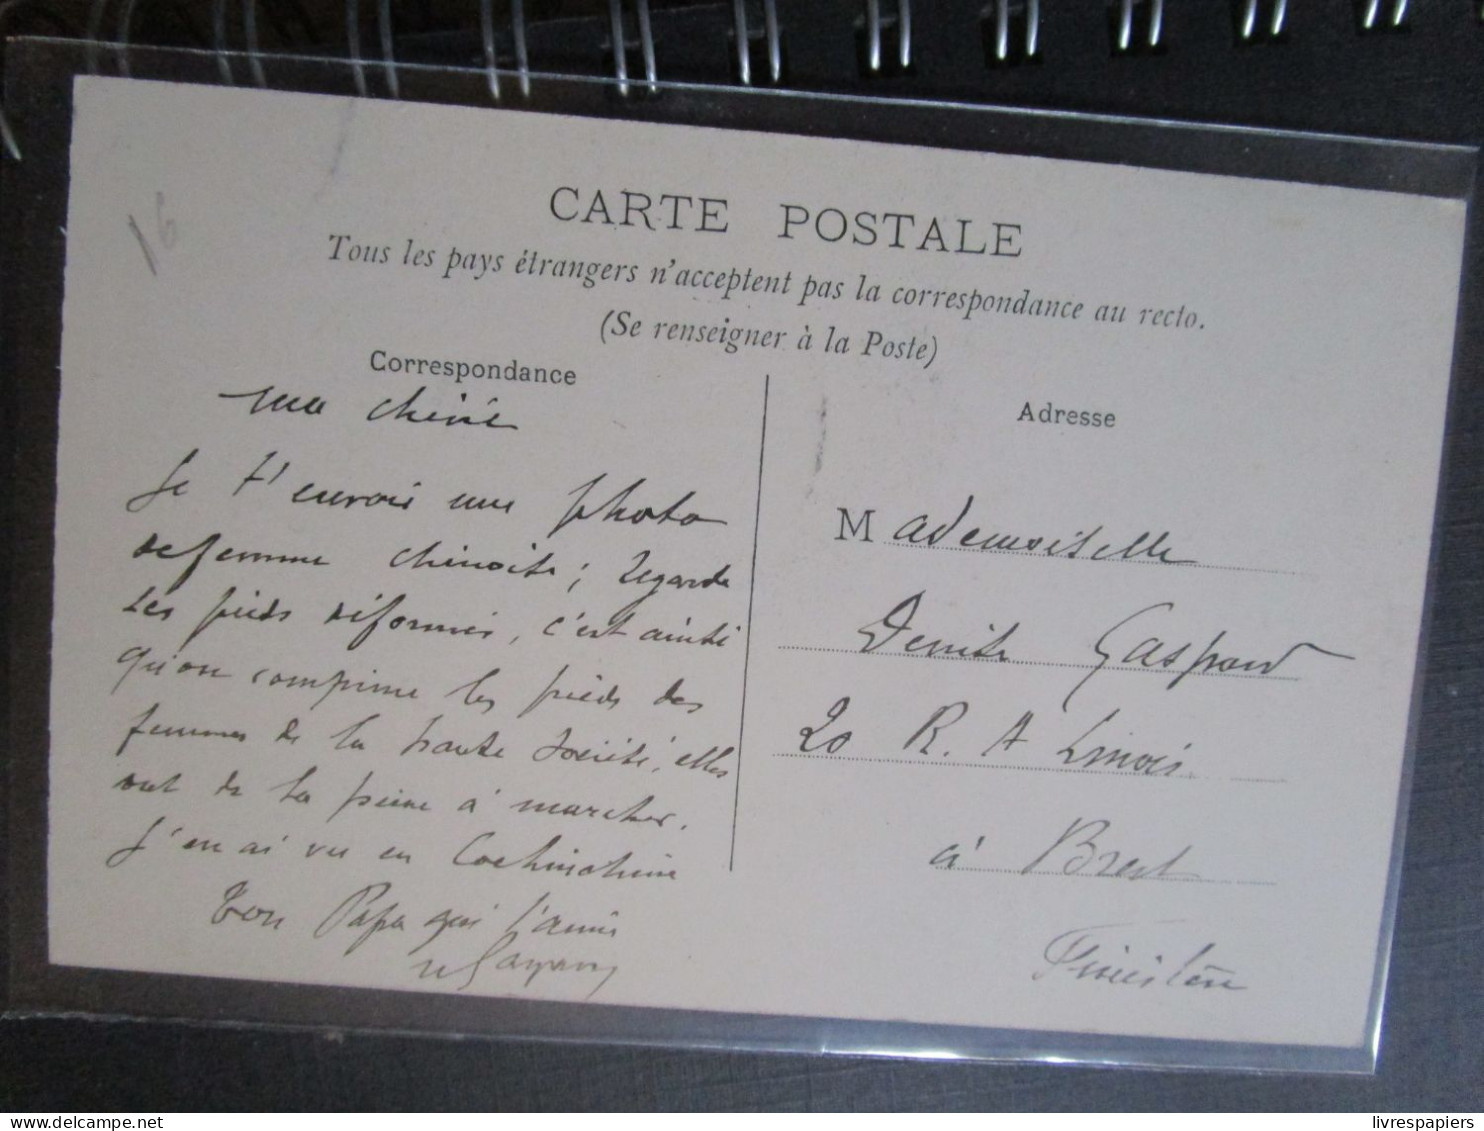 16
CARTE POSTALE
Tous les pays étrangers n'acceptent pas la correspondance au recto.
(Se renseigner à la Poste)
Correspondance
ma chérie
Je t'envoie une photo
de femme chinoise ; regarde
les pieds déformés, c'est ainsi
qu'on comprime les pieds des
femmes de la haute société, elles
ont de la peine à marcher.
J'en ai vu en Cochinchine
Ton Papa qui t'aime
Gaspard
Adresse
Mademoiselle
Denise Gaspard
20 R. A Linois
à Brest
Finistère
livrespapiers
www.delcampe.net